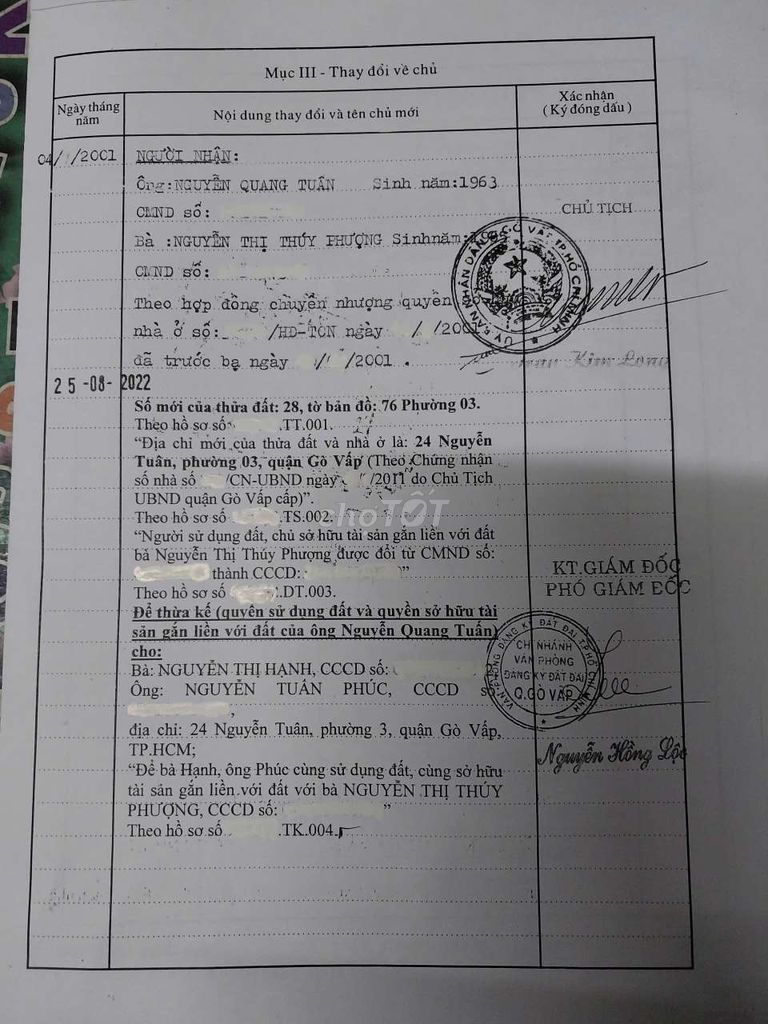 Mục III - Thay đổi về chủ
Ngày tháng năm
Nội dung thay đổi và tên chủ mới
Xác nhận
( Ký đóng dấu )
04/ / /2001
NGƯỜI NHẬN:
Ông:NGUYỄN QUANG TUẤN Sinh năm:1963
CMND số:
CHỦ TỊCH
Bà :NGUYỄN THỊ THÚY PHƯỢNG Sinhnăm:196
CMND số:
Theo hợp đồng chuyển nhượng quyền
nhà ở số: /HĐ-TCN ngày / /2001
đã trước bạ ngày / /2001 .
ỦY BAN NHÂN DÂN Q. GÒ VẤP TP HỒ CHÍ MINH
Kim Long
25-08-2022
Số mới của thửa đất: 28, tờ bản đồ: 76 Phường 03.
Theo hồ sơ số .TT.001.
"Địa chỉ mới của thửa đất và nhà ở là: 24 Nguyễn
Tuân, phường 03, quận Gò Vấp (Theo Chứng nhận
số nhà số /CN-UBND ngày / /2011 do Chủ Tịch
UBND quận Gò Vấp cấp)".
Theo hồ sơ số .TS.002.
"Người sử dụng đất, chủ sở hữu tài sản gắn liền với đất
bà Nguyễn Thị Thúy Phượng được đổi từ CMND số:
thành CCCD: "
Theo hồ sơ số .DT.003.
KT.GIÁM ĐỐC
PHÓ GIÁM ĐỐC
Để thừa kế (quyền sử dụng đất và quyền sở hữu tài
sản gắn liền với đất của ông Nguyễn Quang Tuấn)
cho:
Bà: NGUYỄN THỊ HẠNH, CCCD số:
Ông: NGUYỄN TUẤN PHÚC, CCCD s
,
VĂN PHÒNG ĐĂNG KÝ ĐẤT ĐAI TP HỒ CHÍ MINH
CHI NHÁNH
VĂN PHÒNG
ĐĂNG KÝ ĐẤT ĐAI
Q.GÒ VẤP
địa chỉ: 24 Nguyễn Tuân, phường 3, quận Gò Vấp,
TP.HCM;
Nguyễn Hồng Lộc
"Để bà Hạnh, ông Phúc cùng sử dụng đất, cùng sở hữu
tài sản gắn liền với đất với bà NGUYỄN THỊ THÚY
PHƯỢNG, CCCD số: "
Theo hồ sơ số .TK.004.
choTỐT